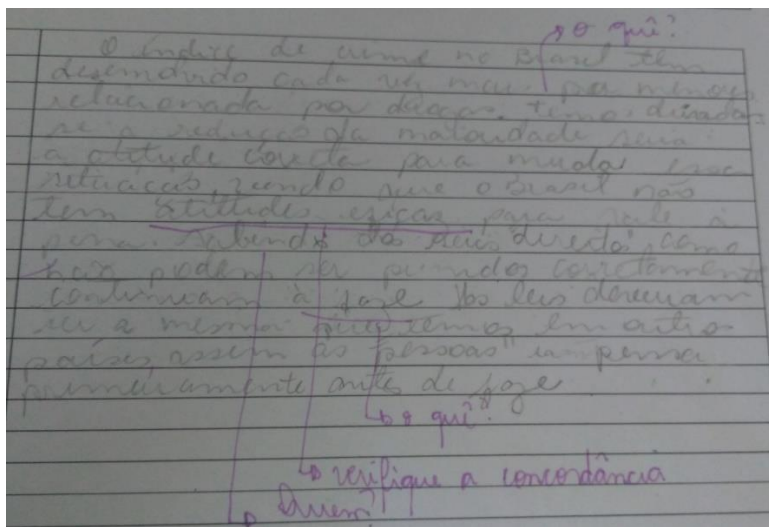 o quê?
O índice de crime no Brasil tem
cada vez mais por menores
relacionada por drogas. temos
se a redução da maioridade seria
a atitude correta para muda essa
situação, sendo que o Brasil não
tem atitudes para vale à
pena. sabendo dos seus direitos, como
não podem ser punidos corretamente
continuam à faze. As leis deveriam
ser a mesma que temos em outros
países, assim as pessoas "iam pensa
primeiramente antes de faze
o quê?
verifique a concordância
Quem?